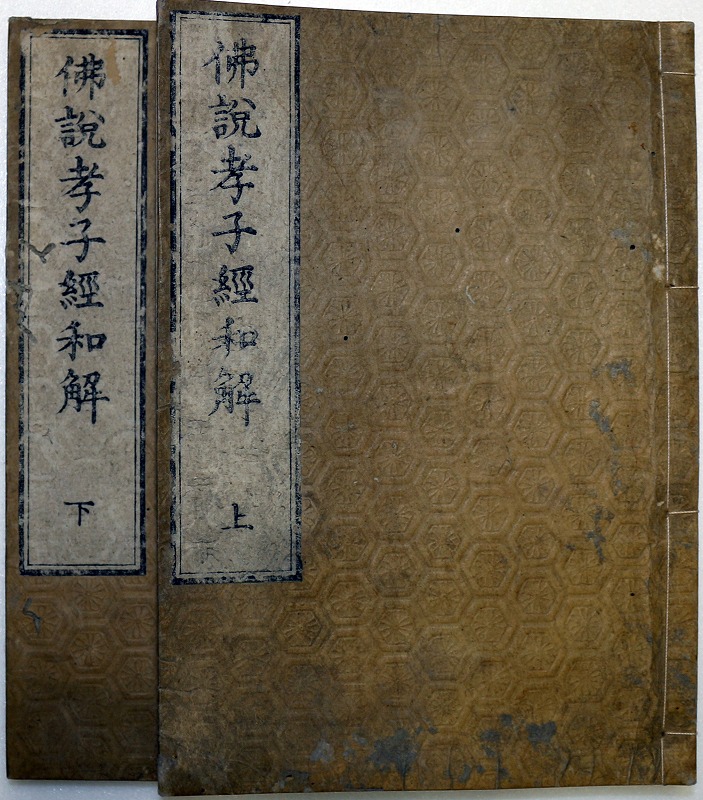 佛說孝子經和解 上
佛說孝子經和解 下